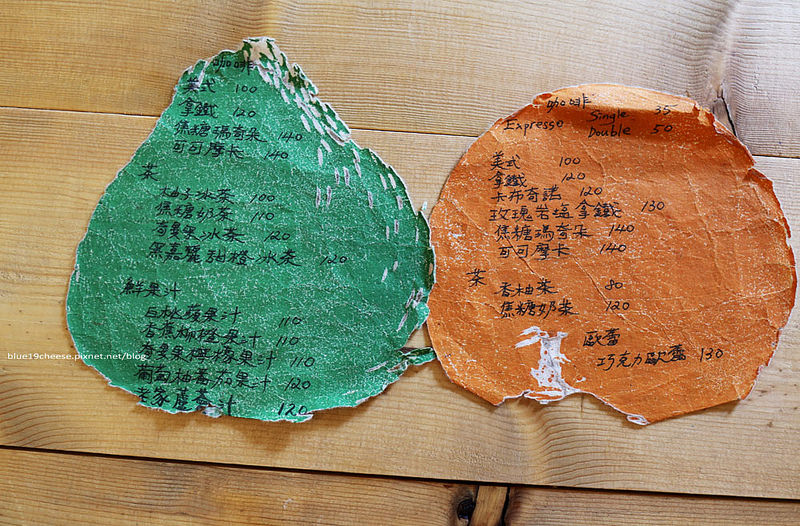 咖啡
美式 100
拿鐵 120
焦糖瑪奇朵 140
可可摩卡 140
茶
柚子冰茶 100
焦糖奶茶 110
百果冰茶 120
黑嘉麗甜橙冰茶 120
鮮果汁
白桃蘋果汁 110
香蕉柳橙果汁 110
百果檸檬果汁 110
葡萄柚蕃茄果汁 120
老家蘆薈汁 120
咖啡
Expresso Single 35
Double 50
美式 100
拿鐵 120
卡布奇諾 120
玫瑰岩塩拿鐵 130
焦糖瑪奇朵 140
可可摩卡 140
茶
香柚茶 80
焦糖奶茶 120
歐蕾
巧克力歐蕾 130
blue19cheese.pixnet.net/blog